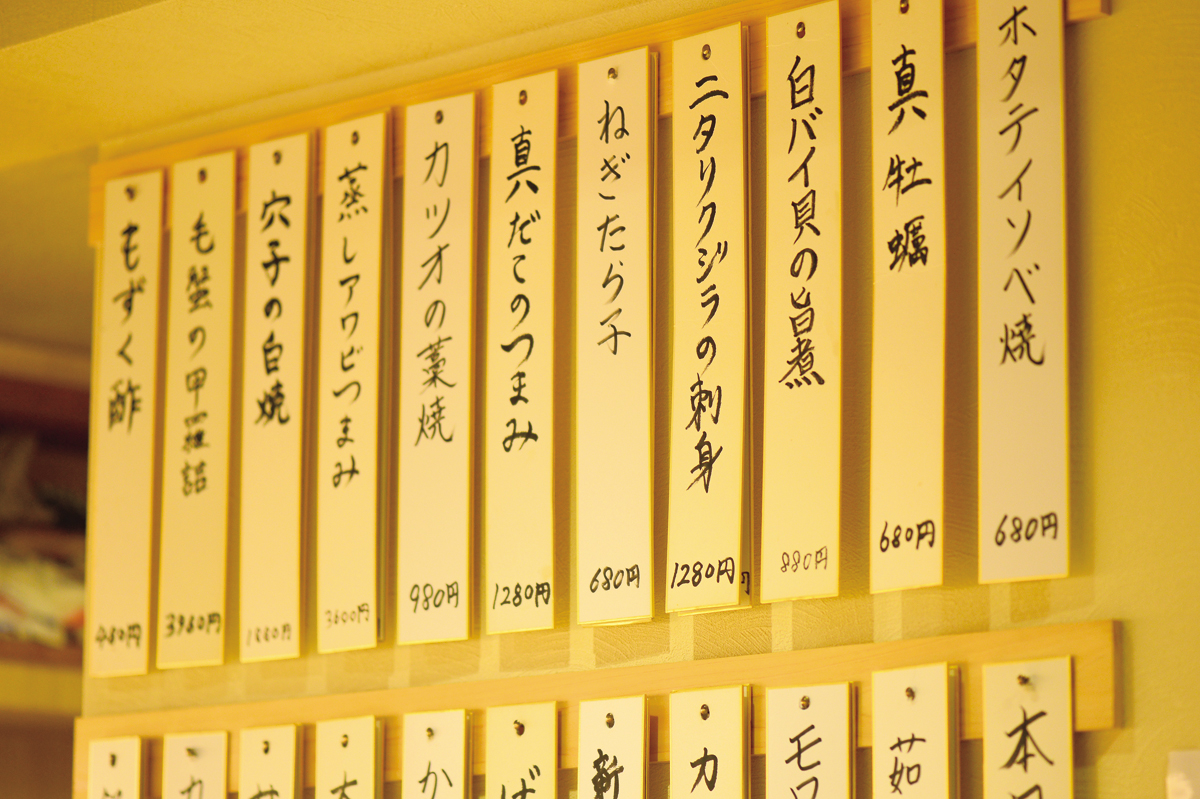 ホタテイソベ焼
680円
真牡蠣
680円
白バイ貝の旨煮
880円
ニタリクジラの刺身
1280円
ねぎたら子
680円
真だこのつまみ
1280円
カツオの藁焼
980円
蒸しアワビつまみ
3600円
穴子の白焼
毛蟹の甲羅詰
3980円
もずく酢
480円
本
茹
モ
カ
斬
ば
か